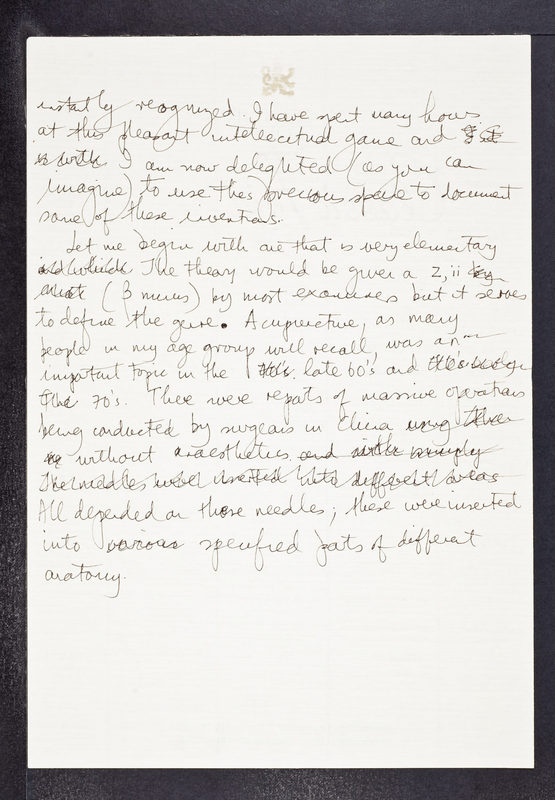 instantly recognized. I have spent many hours
at this pleasant intellectual game and
is with I am now delighted (as you can
imagine) to use this precious space to document
some of these inventions.
Let me begin with one that is very elementary
and which The theory would be given a Z, ii by
(β minus) by most examiners but it serves
to define the genre. Acupuncture, as many
people in my age group will recall, was an
important topic in the late 60's and
the 70's. There were reports of massive operations
being conducted by surgeons in China using
without anaesthetics and with simply
The needles were inserted into different areas
All depended on those needles; these were inserted
into various specified parts of different
anatomy.